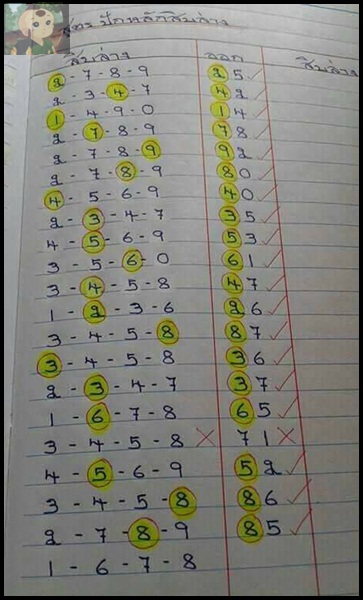 สูตร ปักหลักสิบล่าง
สิบล่าง ออก สิบล่าง
2-7-8-9 25 ✓
2-3-4-7 42 ✓
1-4-9-0 14 ✓
2-7-8-9 78 ✓
2-7-8-9 92 ✓
2-7-8-9 80 ✓
4-5-6-9 40 ✓
2-3-4-7 35 ✓
4-5-6-9 53 ✓
3-5-6-0 61 ✓
3-4-5-8 47 ✓
1-2-3-6 26 ✓
3-4-5-8 87 ✓
3-4-5-8 36 ✓
2-3-4-7 37 ✓
1-6-7-8 65 ✓
3-4-5-8 × 71 ×
4-5-6-9 52 ✓
3-4-5-8 86 ✓
2-7-8-9 85 ✓
1-6-7-8